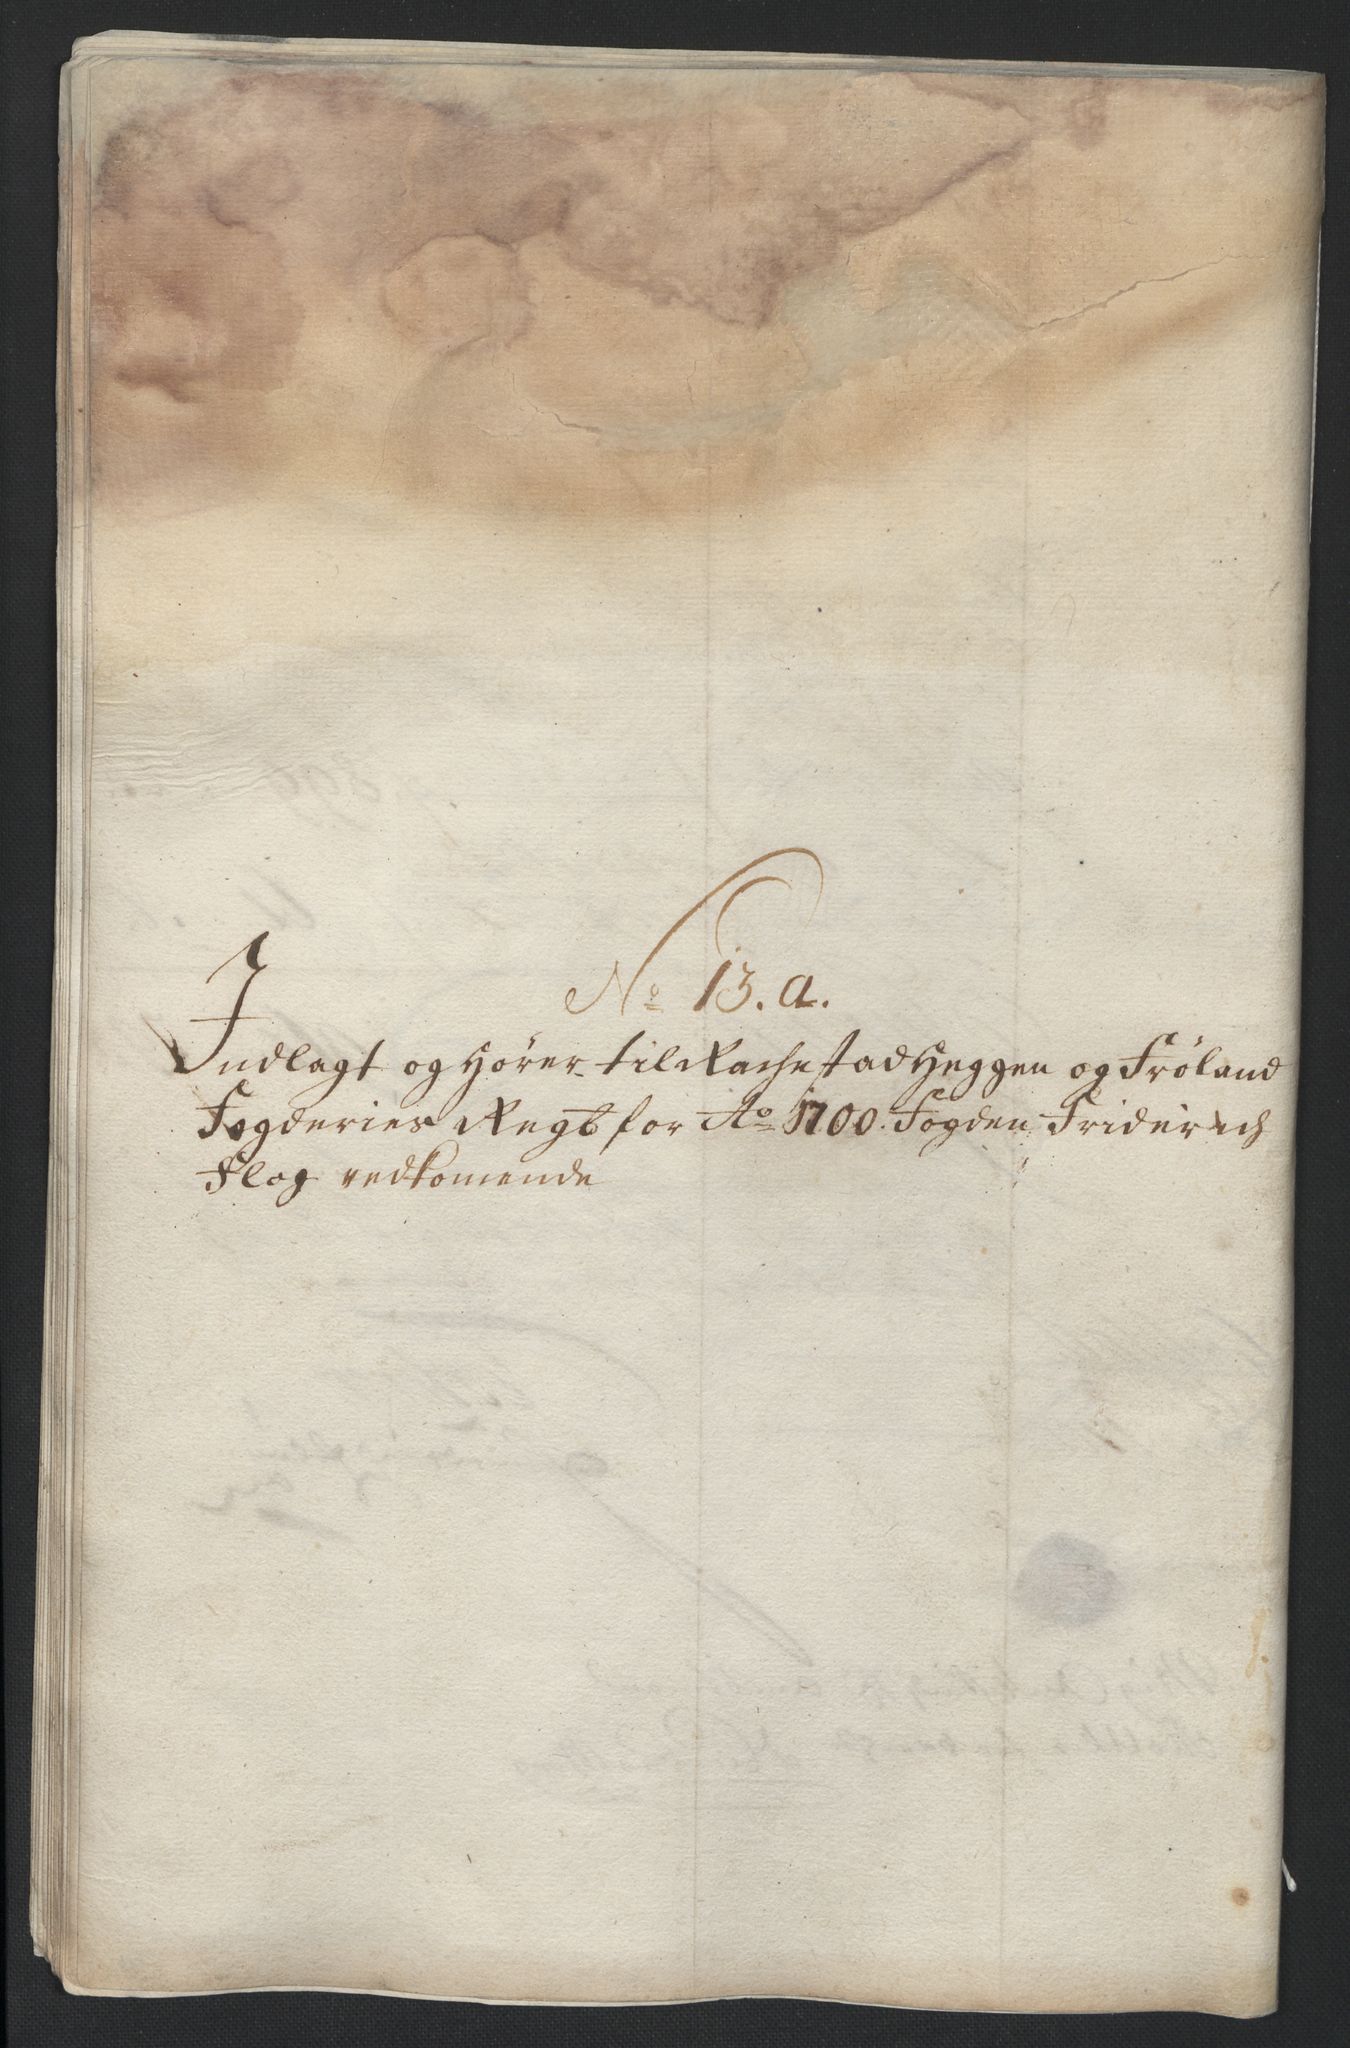 No 13. a.
Indlagt og Hører til Rachestad Heggen og Frøland
Fogderies Regb for Ao 1700. Fogden Friderich
Flog vedkomende